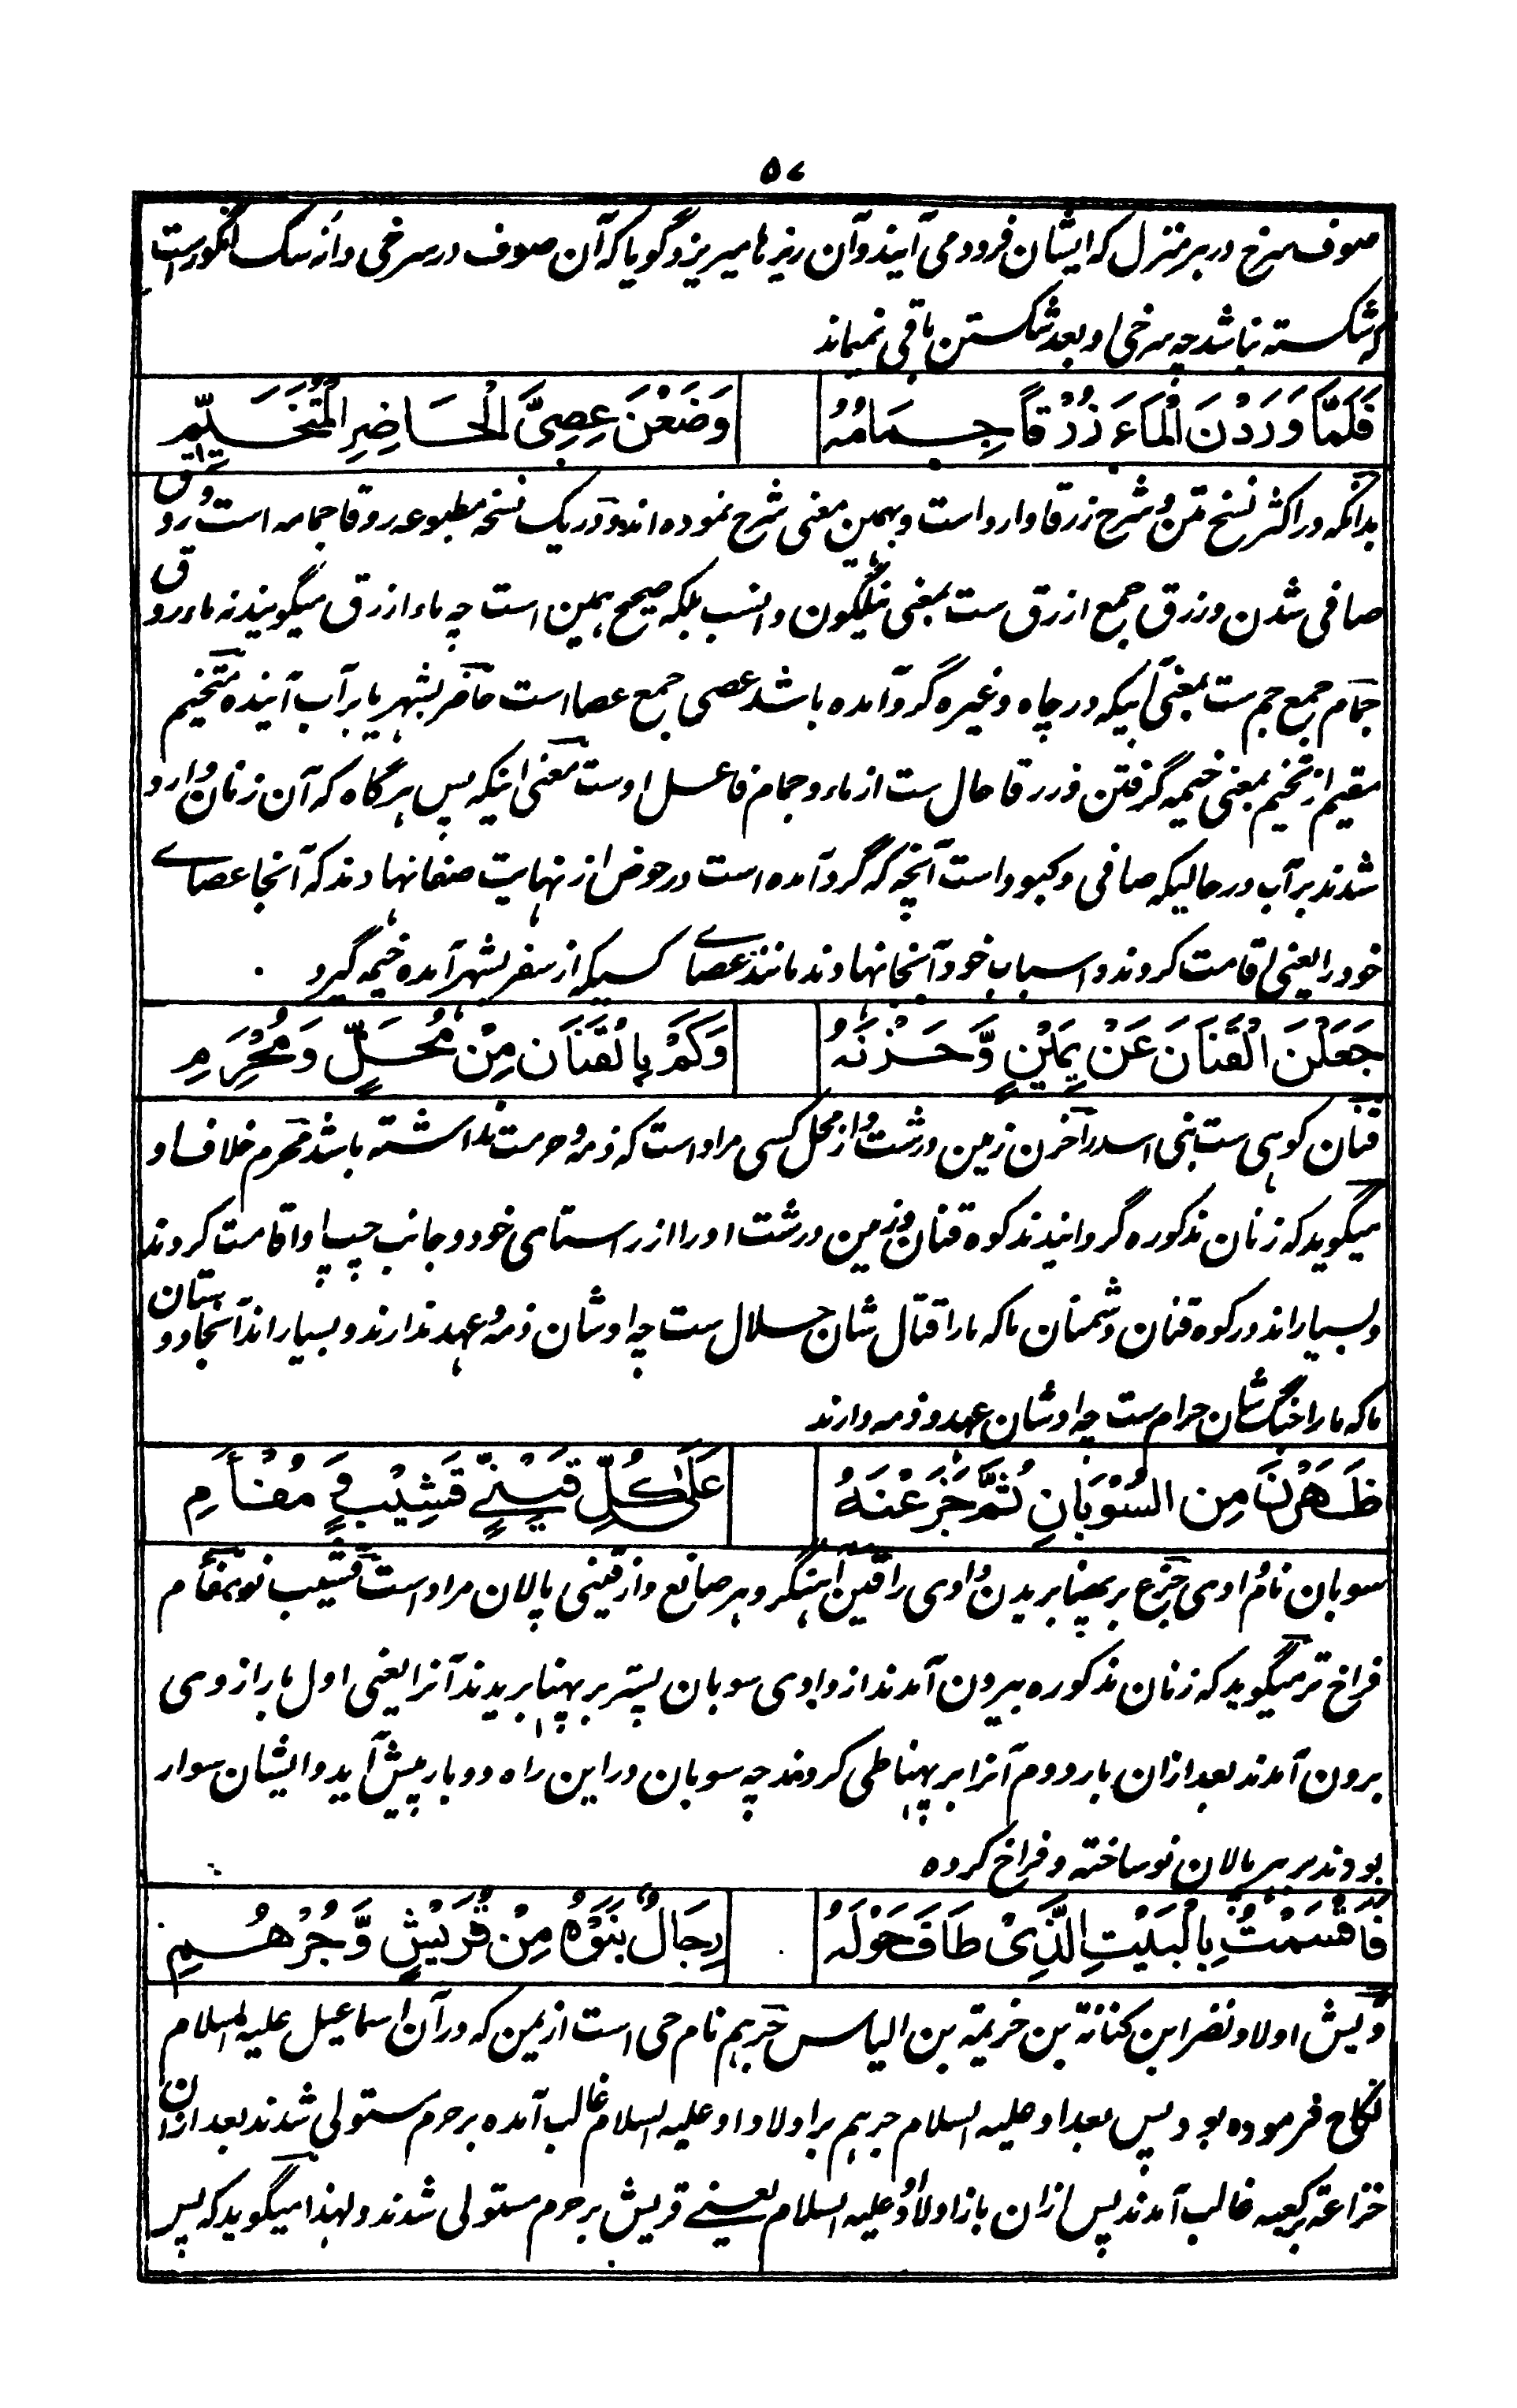 ۵۷
صوف سرخ در هر منزل که ایشان فرود می آیند و آن ریزها میریزد گویا که آن صوف در سرخی دانه سگ انگور است
که شکسته نباشد چه سرخی او بعد شکستن باقی نمیماند
فَلَمَّا وَرَدْنَ الْمَاءَ زُرْقاً جِمَامُهُ وَضَعْنَ عِصِیَّ الْحَاضِرِ الْمُتَخَیِّمِ
بدانکه در اکثر نسخ متن و شرح زرقا وارد است و بهمین معنی شرح نموده اند و در یک نسخه مطبوعه روقا جمامه است و روق
صافی شدن و زرق جمع ازرق ست بمعنی نیلگون و انسب بلکه صحیح همین است چه ماء ازرق میگویند نه ماء روق
جمام جمع جم ست بمعنی آبیکه در چاه و غیره گرد آمده باشد عصی جمع عصا است حاضر بشهر یا بر آب آینده متخیم
مقیم از تخیم بمعنی خیمه گرفتن و زرقا حال ست از ماء و جمام فاعل اوست معنی اینکه پس هرگاه که آن زنان وارد
شدند بر آب در حالیکه صافی و کبود است آنچه که گرد آمده است در حوض از نهایت صفا نهادند که آنجا عصاے
خود را یعنی اقامت کردند و اسباب خود آنجا نهادند مانند عصاے کسیکه از سفر بشهر آمده خیمه گیرد
جَعَلْنَ الْقَنَانَ عَنْ یَمِیْنٍ وَّحَزْنَهُ وَکَمْ بِالْقَنَانِ مِنْ مُحِلٍّ وَمُحْرِمِ
قنان کوهی ست بنی اسد را حزن زمین درشت و از محل کسی مراد است که ذمه و حرمت نداشته باشد محرم خلاف او
میگوید که زنان مذکوره گردانیدند کوه قنان و زمین درشت او را از راستای خود و جانب چپ او اقامت کردند
و بسیار اند در کوه قنان دشمنان ما که ما را قتال شان حلال ست چه اوشان ذمه و عهد ندارند و بسیار اند آنجا دوستان
ما که ما را جنگ شان حرام ست چه اوشان عهد و ذمه دارند
ظَهَرْنَ مِنَ السُّوْبَانِ ثُمَّ جَزَعْنَهُ عَلٰی کُلِّ قَیْنِیٍّ قَشِیْبٍ وَّ مُفْأَمِ
سوبان نام وادی جزع بر پهنا بریدن وادی را قین آهنگر و هر صانع و از قینی پالان مراد است قشیب نو مفأم
فراخ تر میگوید که زنان مذکوره بیرون آمدند از وادی سوبان پستر بر پهنا بریدند آنرا یعنی اول بار از وی
برون آمدند بعد ازان بار دوم آنرا بر پهنا طی کردند چه سوبان در این راه دوبار پیش آید و ایشان سوار
بودند بر هر پالان نو ساخته و فراخ کرده
فَأَقْسَمْتُ بِالْبَیْتِ الَّذِیْ طَافَ حَوْلَهُ رِجَالٌ بَنَوْهُ مِنْ قُرَیْشٍ وَّجُرْهُمِ
قریش اولاد نضر ابن کنانة بن خزیمة بن الیاس جرهم نام حی است از یمن که در آن اسماعیل علیه السلام
نکاح فرموده بود پس بعد او علیه السلام جرهم بر اولاد او علیه السلام غالب آمده بر حرم مستولی شدند بعد ازان
خزاعة بر کعبه غالب آمدند پس ازان باز اولاد او علیه السلام یعنے قریش بر حرم مستولی شدند و لهذا میگوید که پس